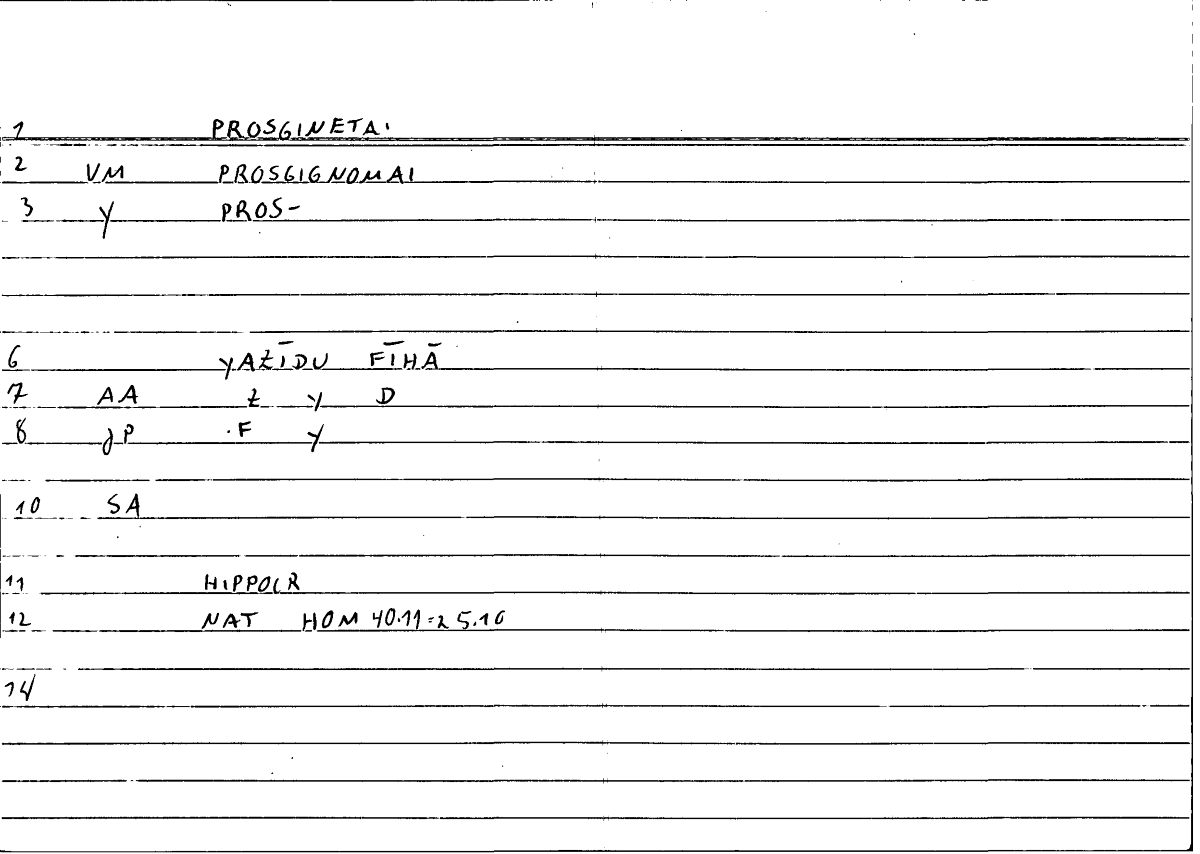 1 PROSGINETAI
2 VM PROSGIGNOMAI
3 Y PROS-
6 YAZĪDU FĪHĀ
7 AA Z Y D
8 JP F Y
10 SA
11 HIPPOCR
12 NAT HOM 40.11=25.16
14